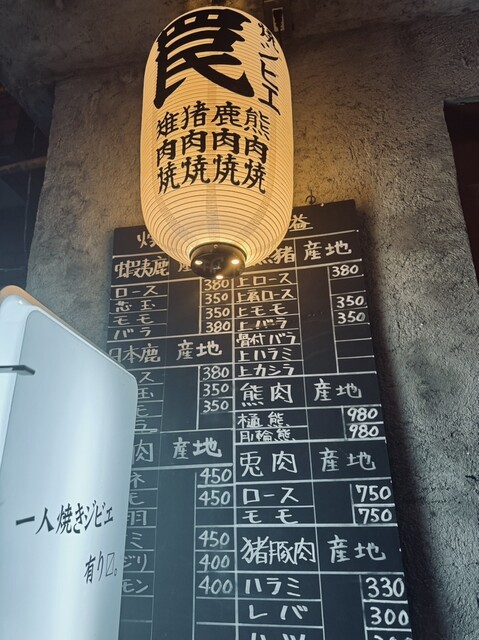 焼ジビエ
罠
熊肉焼
鹿肉焼
猪肉焼
雉肉焼
蝦夷鹿
ロース 380
芯玉 350
モモ 350
バラ 380
日本鹿 産地
ス 380
玉 350
モ 350
肉 産地
ネ 450
モ 450
羽
ミ 450
ジリ 400
モン 400
猪 産地
上ロース 380
上肩ロース
上モモ 350
上バラ 350
骨付バラ
上ハラミ
上カシラ
熊肉 産地
樋熊 980
月輪熊 980
兎肉 産地
ロース 750
モモ 750
猪豚肉 産地
ハラミ 330
レバ 300
一人焼きジビエ
有り〼。